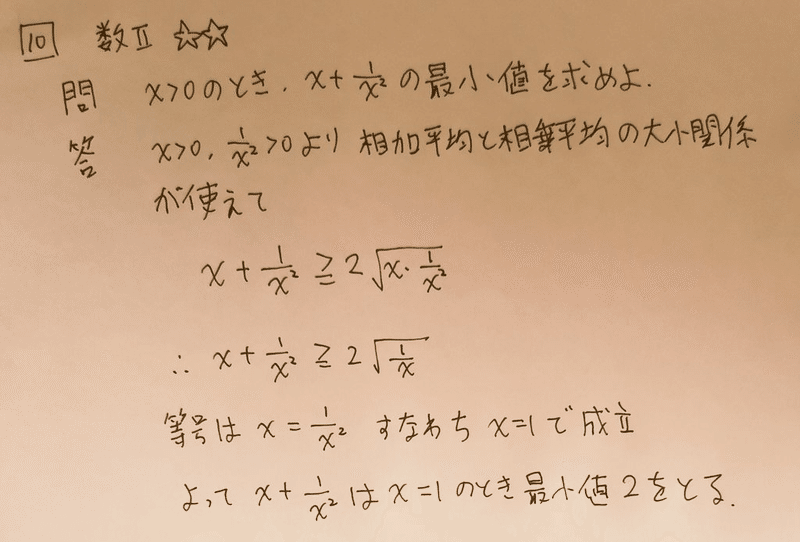 10 数Ⅱ ☆☆
問 x>0のとき、x+1/x²の最小値を求めよ.
答 x>0, 1/x²>0より相加平均と相乗平均の大小関係
が使えて
x+1/x² ≧ 2√(x・1/x²)
∴ x+1/x² ≧ 2√(1/x)
等号は x=1/x² すなわち x=1で成立
よって x+1/x² は x=1のとき最小値2をとる.